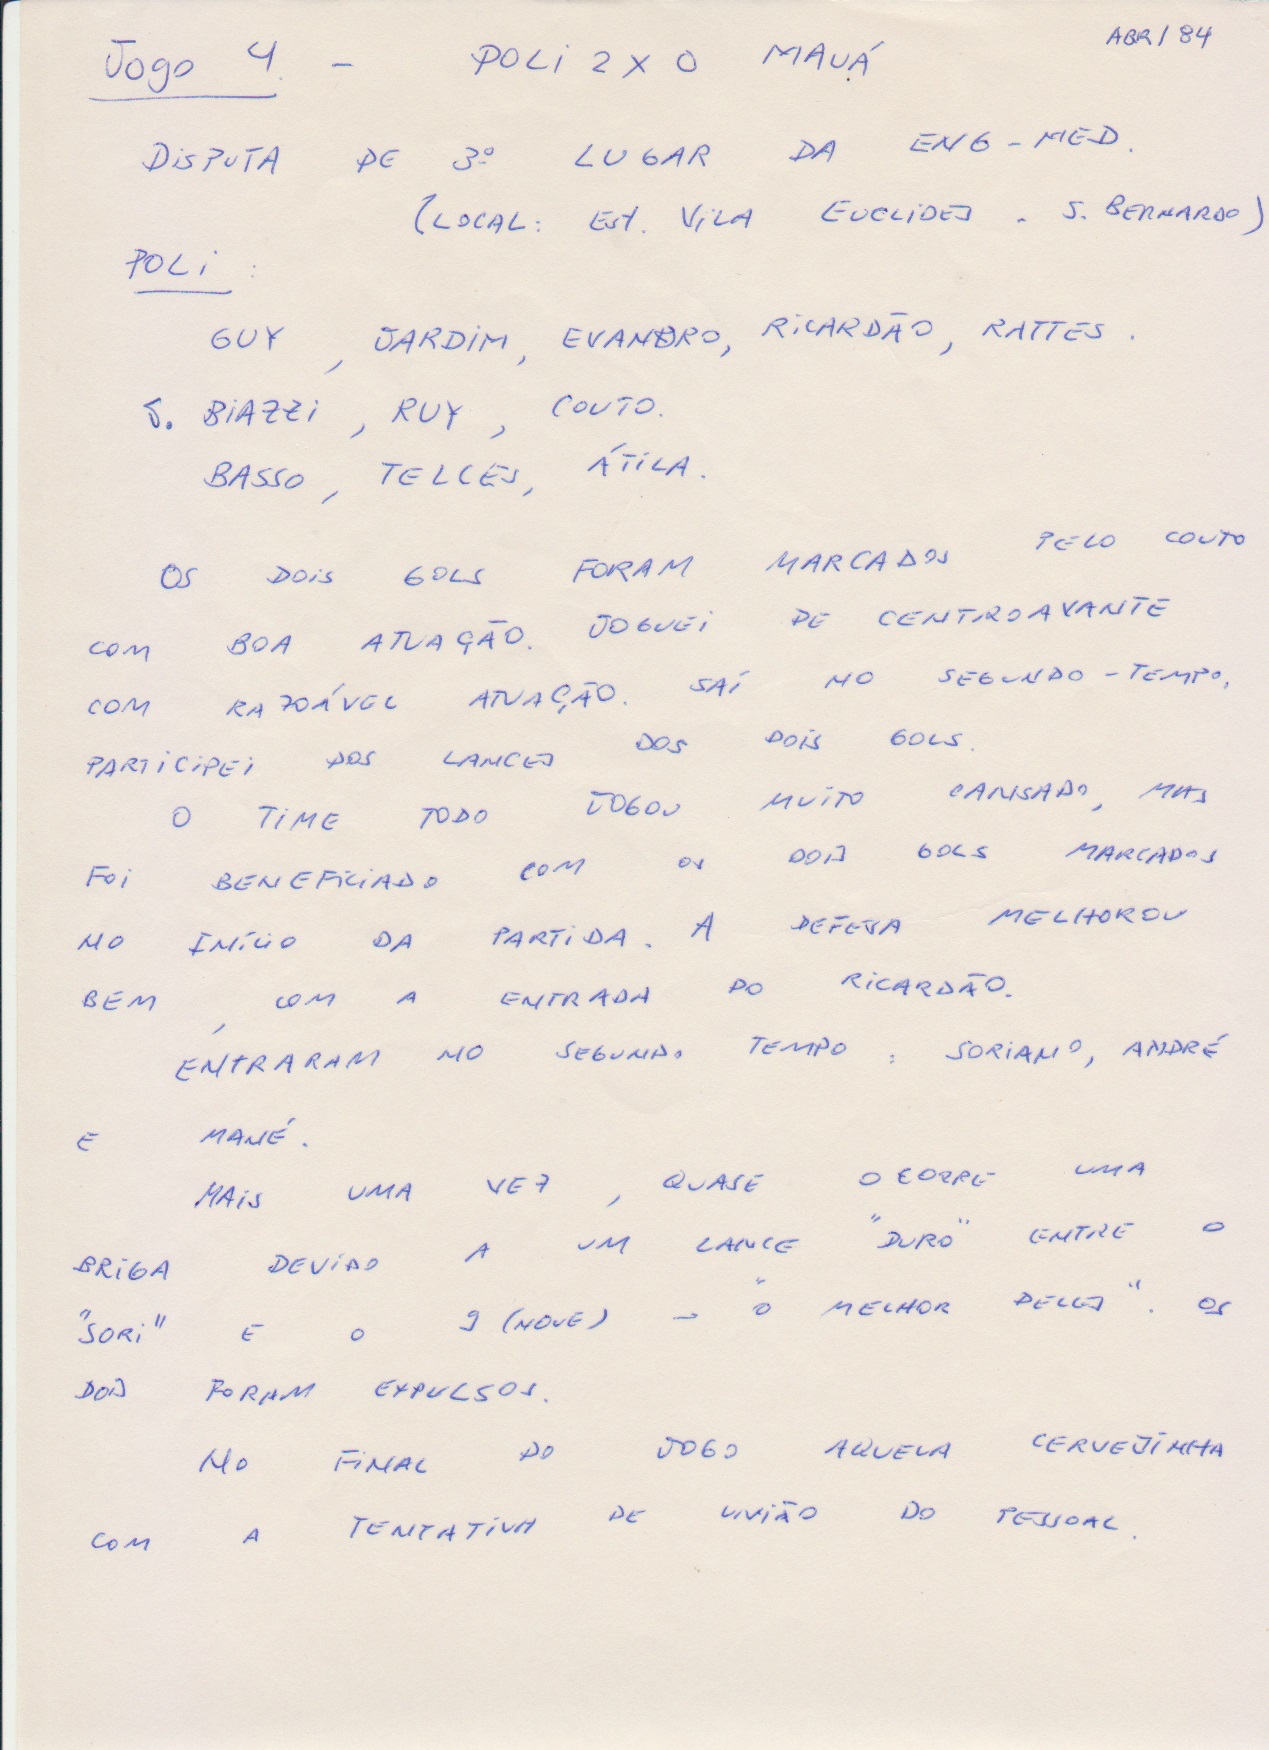 ABR/84
Jogo 4 - POLI 2 X 0 MAUÁ
DISPUTA DE 3º LUGAR DA ENG-MED.
(LOCAL: EST. VILA EUCLIDES. S. BERNARDO)
POLI:
GUY, JARDIM, EVANDRO, RICARDÃO, RATTES.
S. BIAZZI, RUY, COUTO.
BASSO, TELLES, ÁTILA.
OS DOIS GOLS FORAM MARCADOS PELO COUTO
COM BOA ATUAÇÃO. JOGUEI DE CENTROAVANTE
COM RAZOÁVEL ATUAÇÃO. SAÍ NO SEGUNDO-TEMPO,
PARTICIPEI DOS LANCES DOS DOIS GOLS.
O TIME TODO JOGOU MUITO CANSADO, MAS
FOI BENEFICIADO COM OS DOIS GOLS MARCADOS
NO INÍCIO DA PARTIDA. A DEFESA MELHOROU
BEM, COM A ENTRADA DO RICARDÃO.
ENTRARAM NO SEGUNDO TEMPO: SORIANO, ANDRÉ
E MANÉ.
MAIS UMA VEZ, QUASE OCORRE UMA
BRIGA DEVIDO A UM LANCE "DURO" ENTRE O
"SORI" E O 9 (NOVE) - "O MELHOR DELES". OS
DOIS FORAM EXPULSOS.
NO FINAL DO JOGO AQUELA CERVEJINHA
COM A TENTATIVA DE UNIÃO DO PESSOAL.